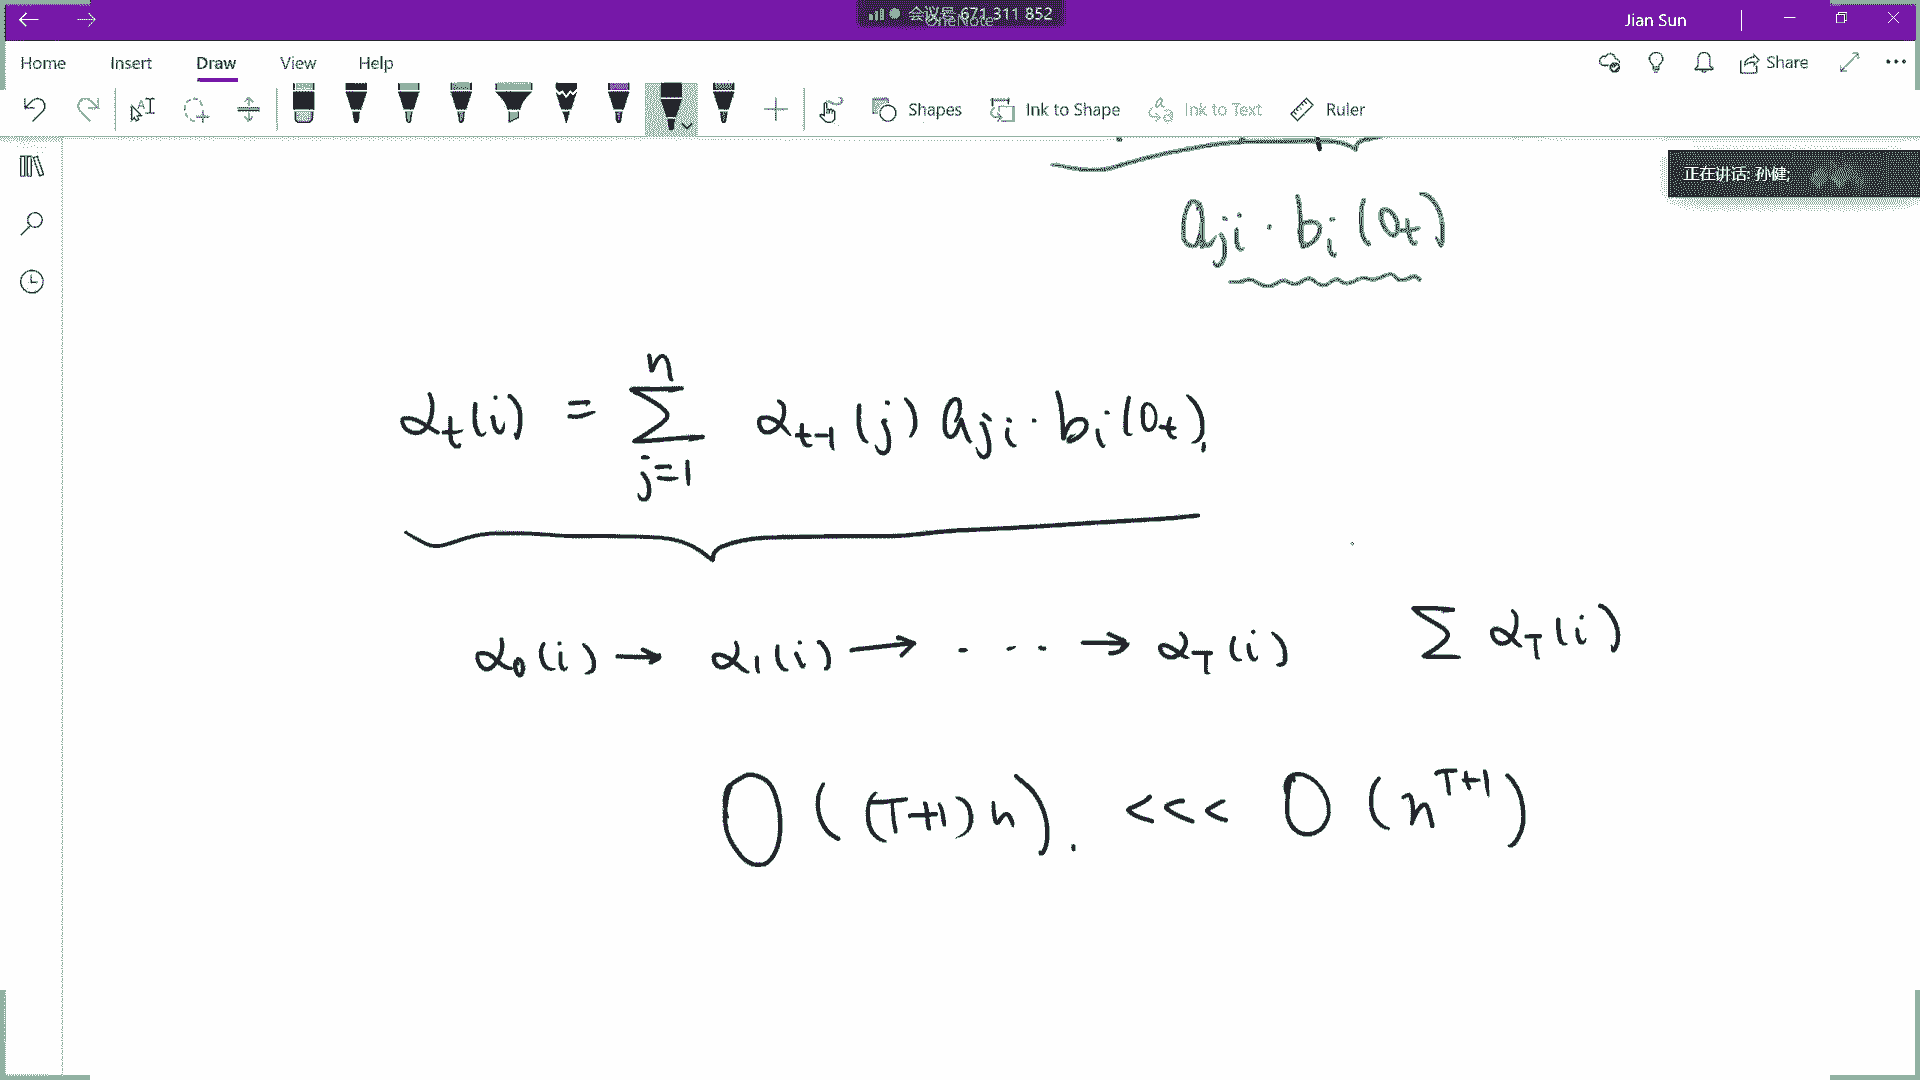 会议号 671 311 852
OneNote
Jian Sun
Home Insert Draw View Help
Share
Shapes Ink to Shape Ink to Text Ruler
正在讲话: 孙健;
a_{ji} · b_i(o_t)
α_t(i) = \sum_{j=1}^{n} α_{t-1}(j) a_{ji} · b_i(o_t).
α_0(i) → α_1(i) → · ··· → α_T(i) ∑ α_T(i)
O((T+1)n). <<< O(n^{T+1})